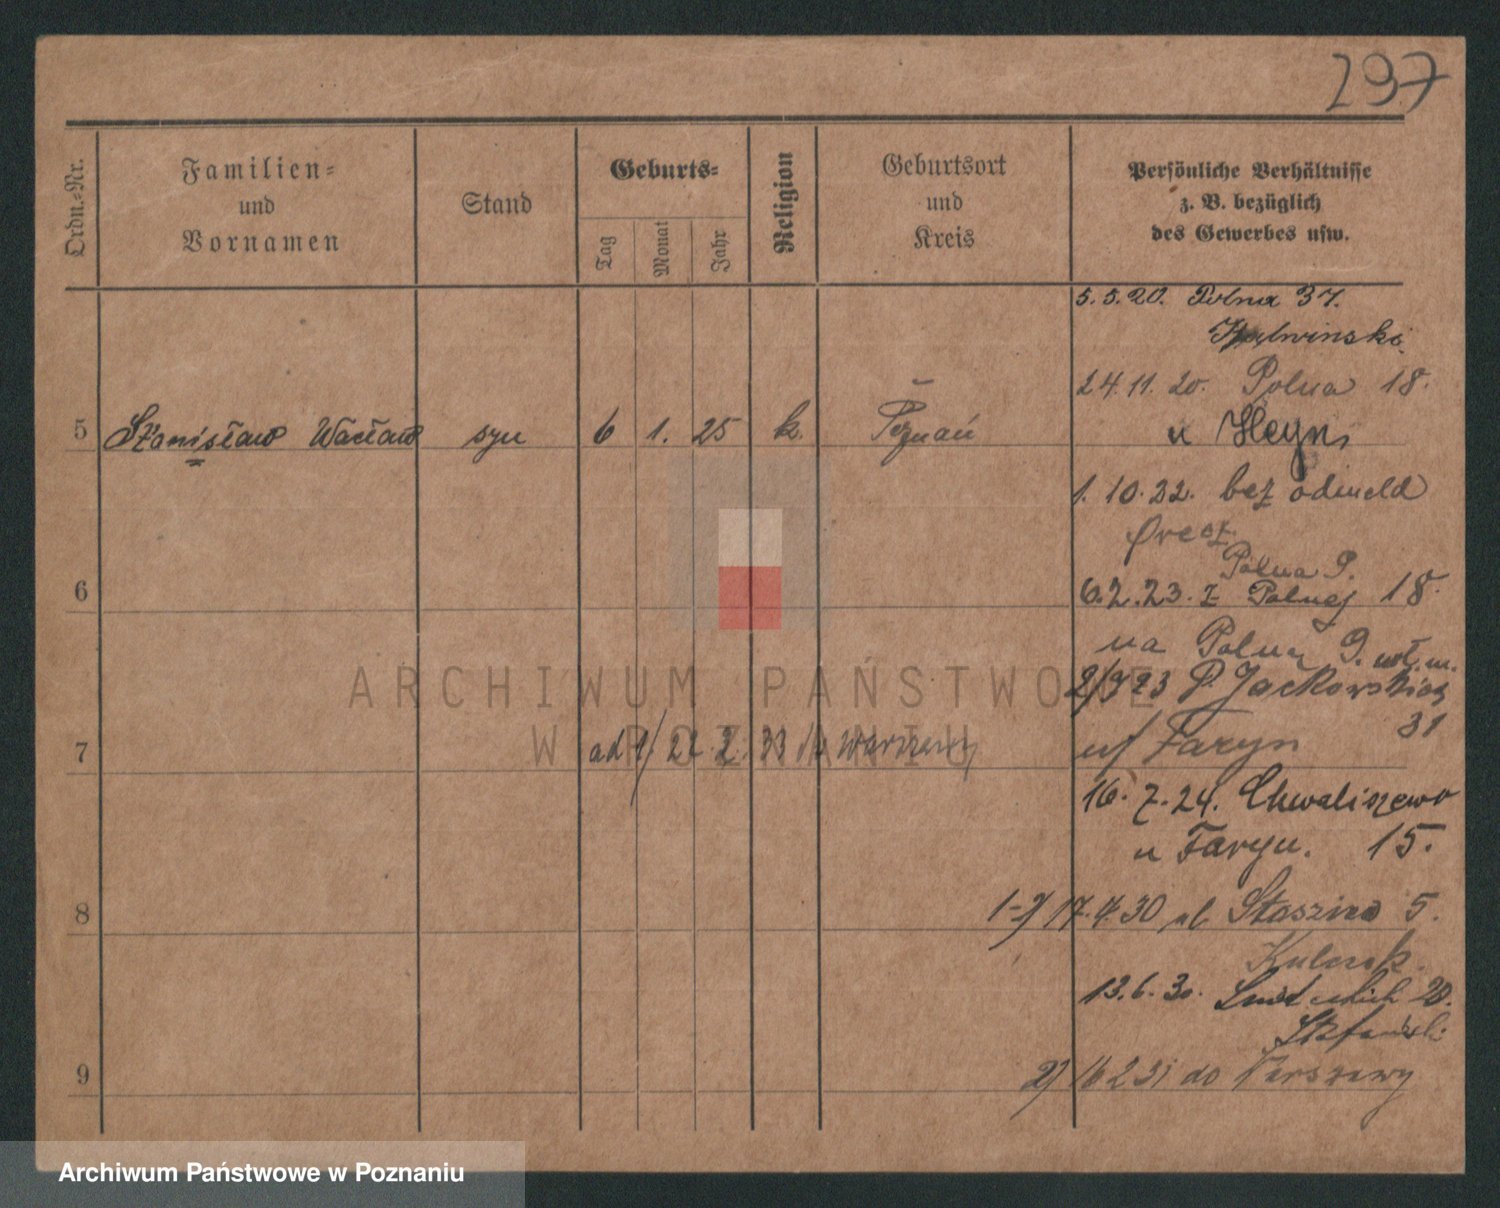 297
Ordn.-Nr.
Familien-
und
Vornamen
Stand
Geburts-
Tag
Monat
Jahr
Religion
Geburtsort
und
Kreis
Persönliche Verhältnisse
z. B. bezüglich
des Gewerbes usw.
5.5.20. Polna 37.
24.11.20. Polna 18.
5 Stanisław Wacław syn 6 1. 25 k. Poznań
u Heyn
1.10.22. bez odmeld
Polna 9.
6 6.2.23. z Polnej 18.
na Polną 9.
2/9 23 P. Jackowskiego
31
7 ad 1/ 21.2.33 Warszawy
u/ Faryn
16.7.24. Chwaliszewo
u Faryn. 15.
8 1-2/ 17.4.30 ul Staszica 5.
13.6.30. 20.
9 2/ 16 2 31 do Warszawy
ARCHIWUM PAŃSTWOWE
W POZNANIU
Archiwum Państwowe w Poznaniu